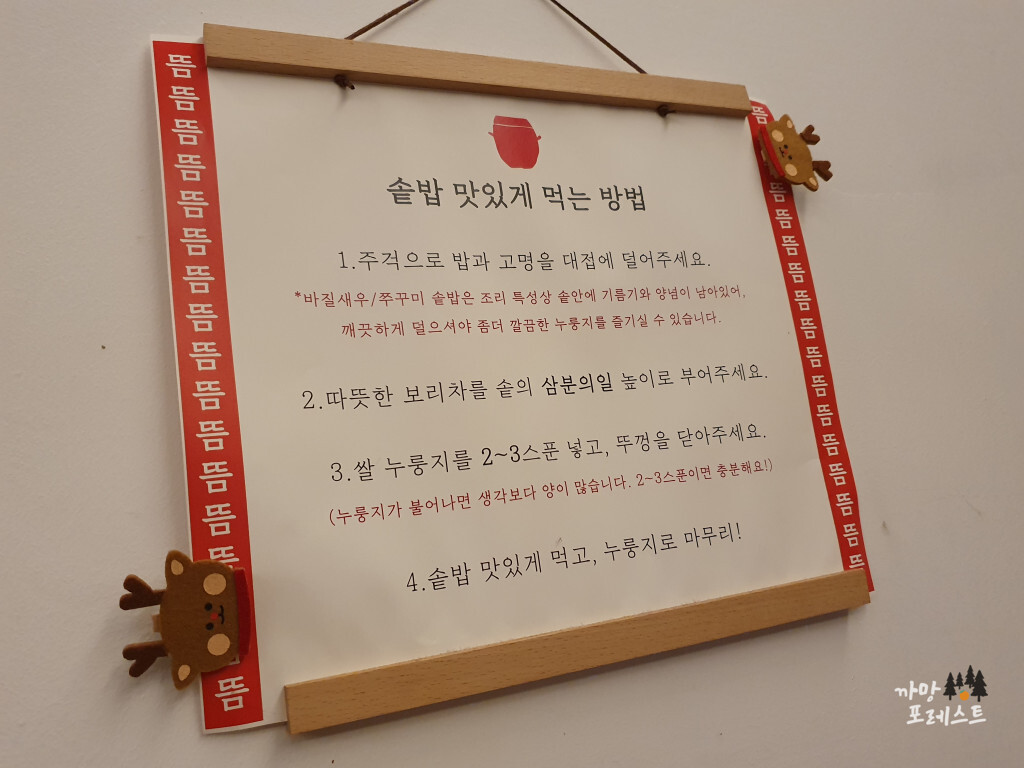 솥밥 맛있게 먹는 방법
1.주걱으로 밥과 고명을 대접에 덜어주세요.
*바질새우/쭈꾸미 솥밥은 조리 특성상 솥안에 기름기와 양념이 남아있어,
깨끗하게 덜으셔야 좀더 깔끔한 누룽지를 즐기실 수 있습니다.
2.따뜻한 보리차를 솥의 삼분의일 높이로 부어주세요.
3.쌀 누룽지를 2~3스푼 넣고, 뚜껑을 닫아주세요.
(누룽지가 불어나면 생각보다 양이 많습니다. 2~3스푼이면 충분해요!)
4.솥밥 맛있게 먹고, 누룽지로 마무리!
뜸
뜸
뜸
뜸
뜸
뜸
뜸
뜸
뜸
뜸
뜸
뜸
뜸
뜸
뜸
뜸
뜸
뜸
뜸
뜸
뜸
뜸
뜸
뜸
뜸
뜸
뜸
뜸
뜸
까망
포레스트